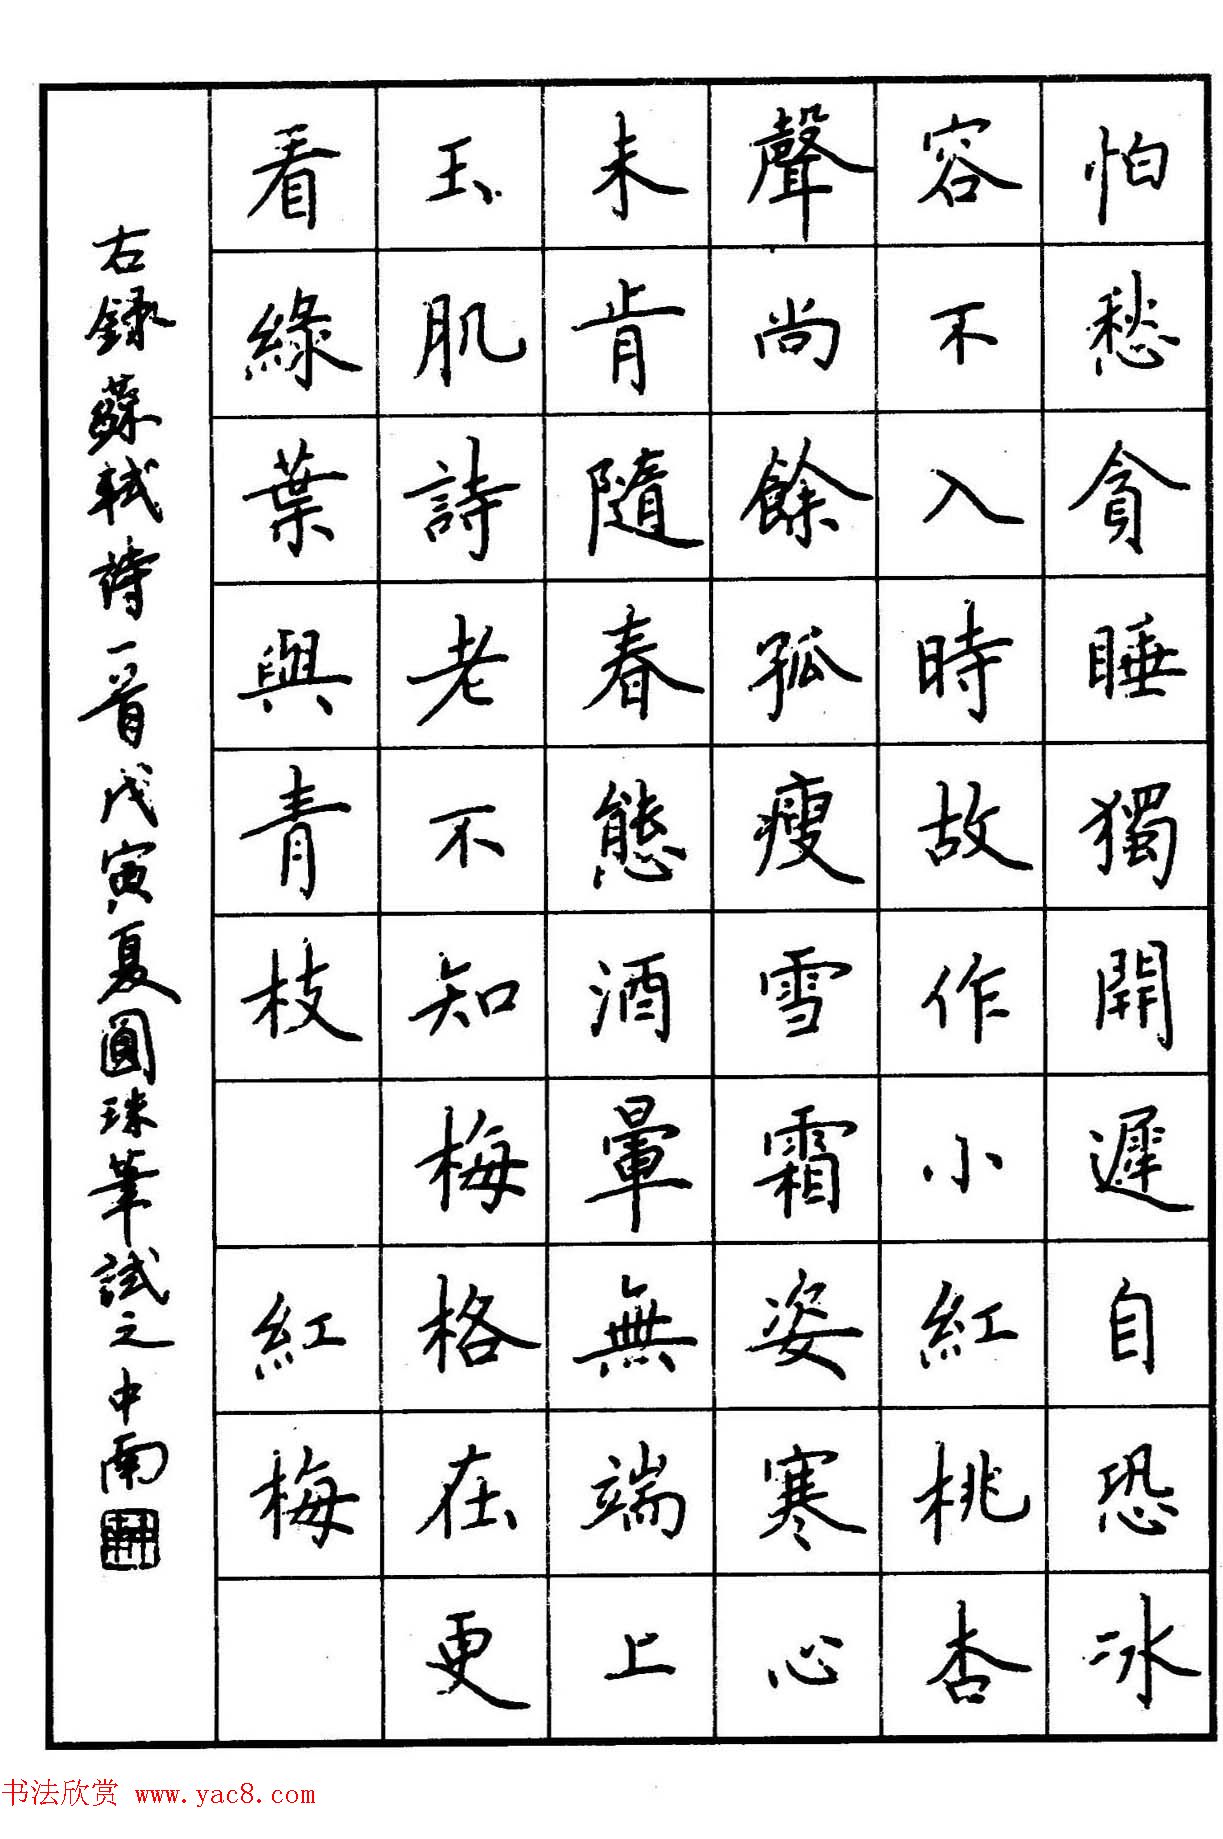 怕愁貪睡獨開遲自恐冰
容不入時故作小紅桃杏
聲尚餘孤瘦雪霜姿寒心
未肯隨春態酒暈無端上
玉肌詩老不知梅格在更
看綠葉與青枝 紅梅
右録蘇軾詩一首戊寅夏圓珠筆試之中南
书法欣赏 www.yac8.com